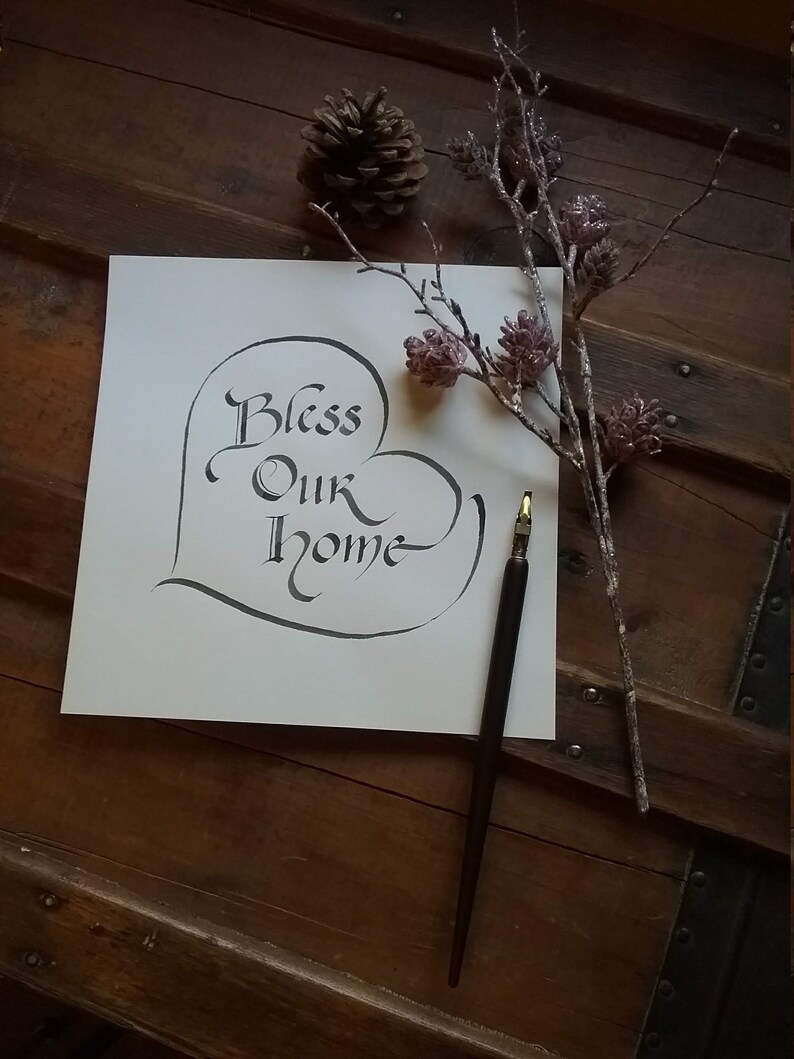 Bless
Our
home